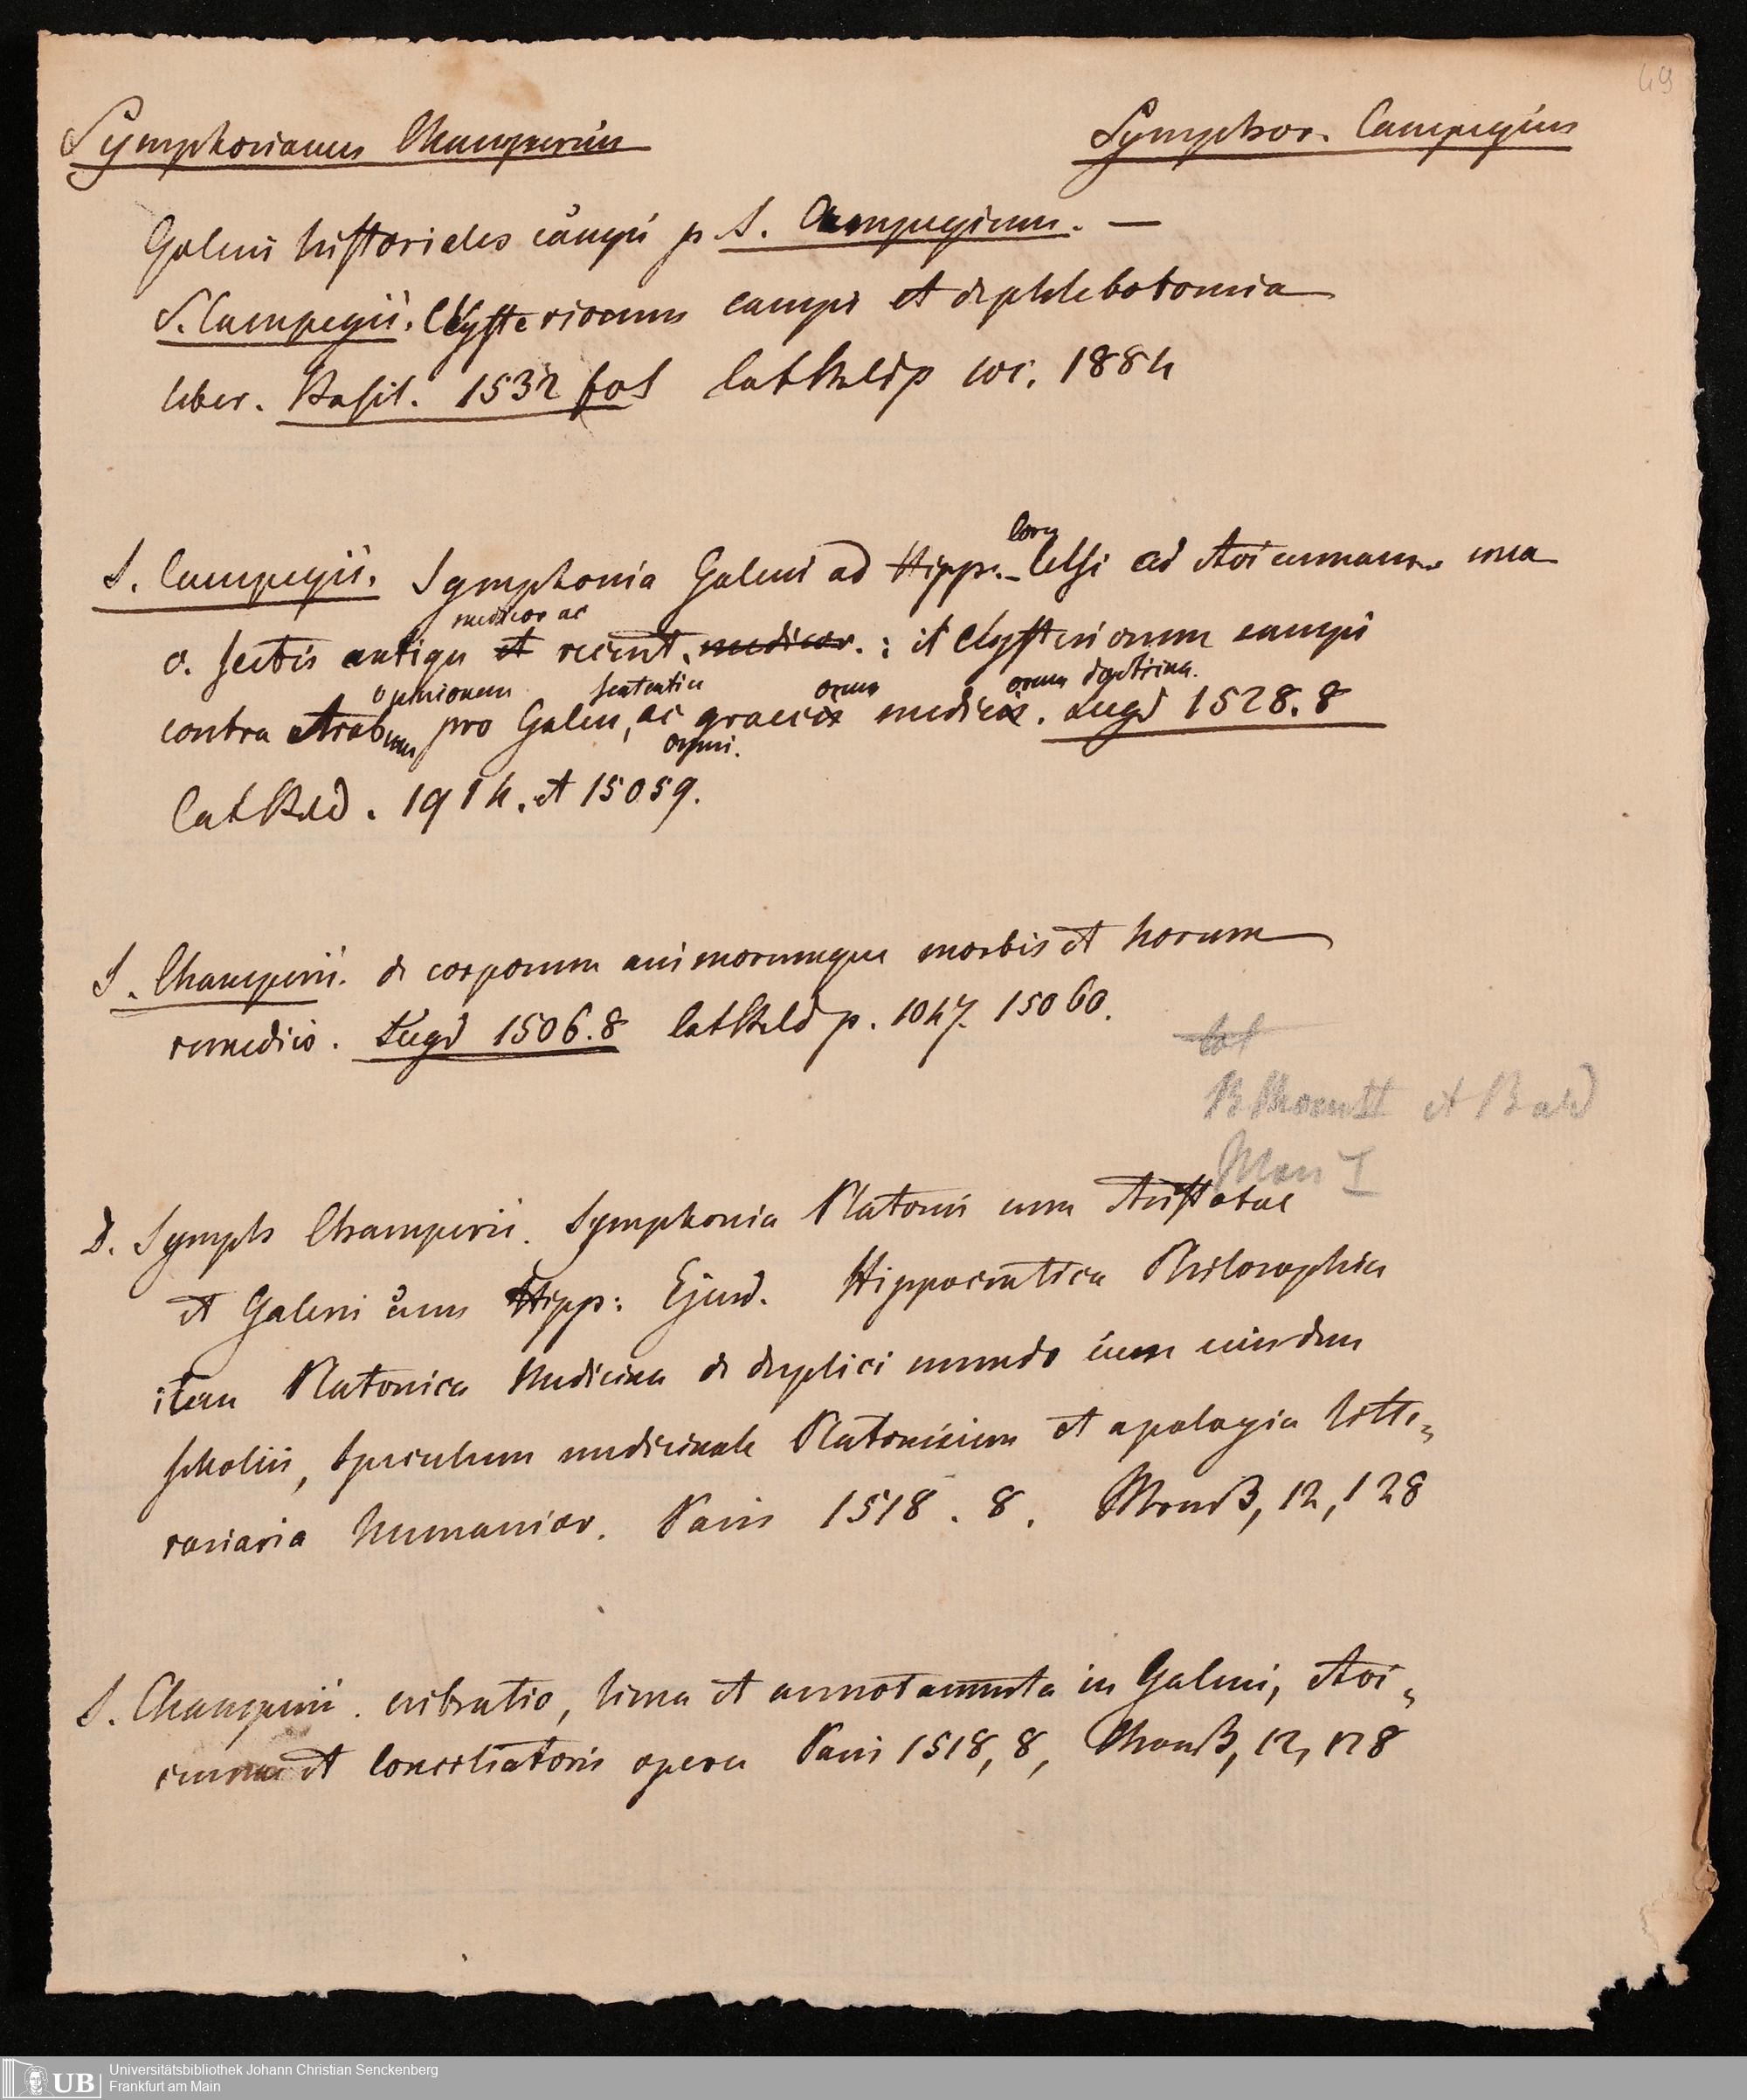 49
Symphorianus Champerius Symphor. Campegius
Galeni historiales campi p. S. Campegium. —
S. Campegii. Clysteriorum campi et de phlebotomia
liber. Basil. 1532 fol Cat Baldp 1884
S. Campegii. Symphonia Galeni ad Hipp. – Corn Celsi ad Avicennam una
c. sectis antiqu et medicor ac recent. medicor. : it Clysteriorum campi
contra Arabum opinionem pro Galeni, sententia ac graecor omni. medicor omn doctrina. Lugd 1528. 8
Cat Bald. 1914. et 15059.
S. Champerii. de corporum animorumque morbis et horum
remediis. Lugd 1506. 8 Cat Bald p. 1047. 15060.
et Bald
D. Symph Champerii. Symphonia Platonis cum Aristotele
et Galeni cum Hipp: Ejusd. Hippocratica Philosophia
item Platonica Medicina de duplici mundo cum eiusdem
scholiis, Speculum medicinale Platonicum et apologia litte-
rariaria humanior. Paris 1518. 8. 12, 128
S. Champerii. cribratio, lima et annotamenta in Galeni, Avi-
cennae et Conciliatoris opera Paris 1518, 8, 12, 128
UB Universitätsbibliothek Johann Christian Senckenberg
Frankfurt am Main